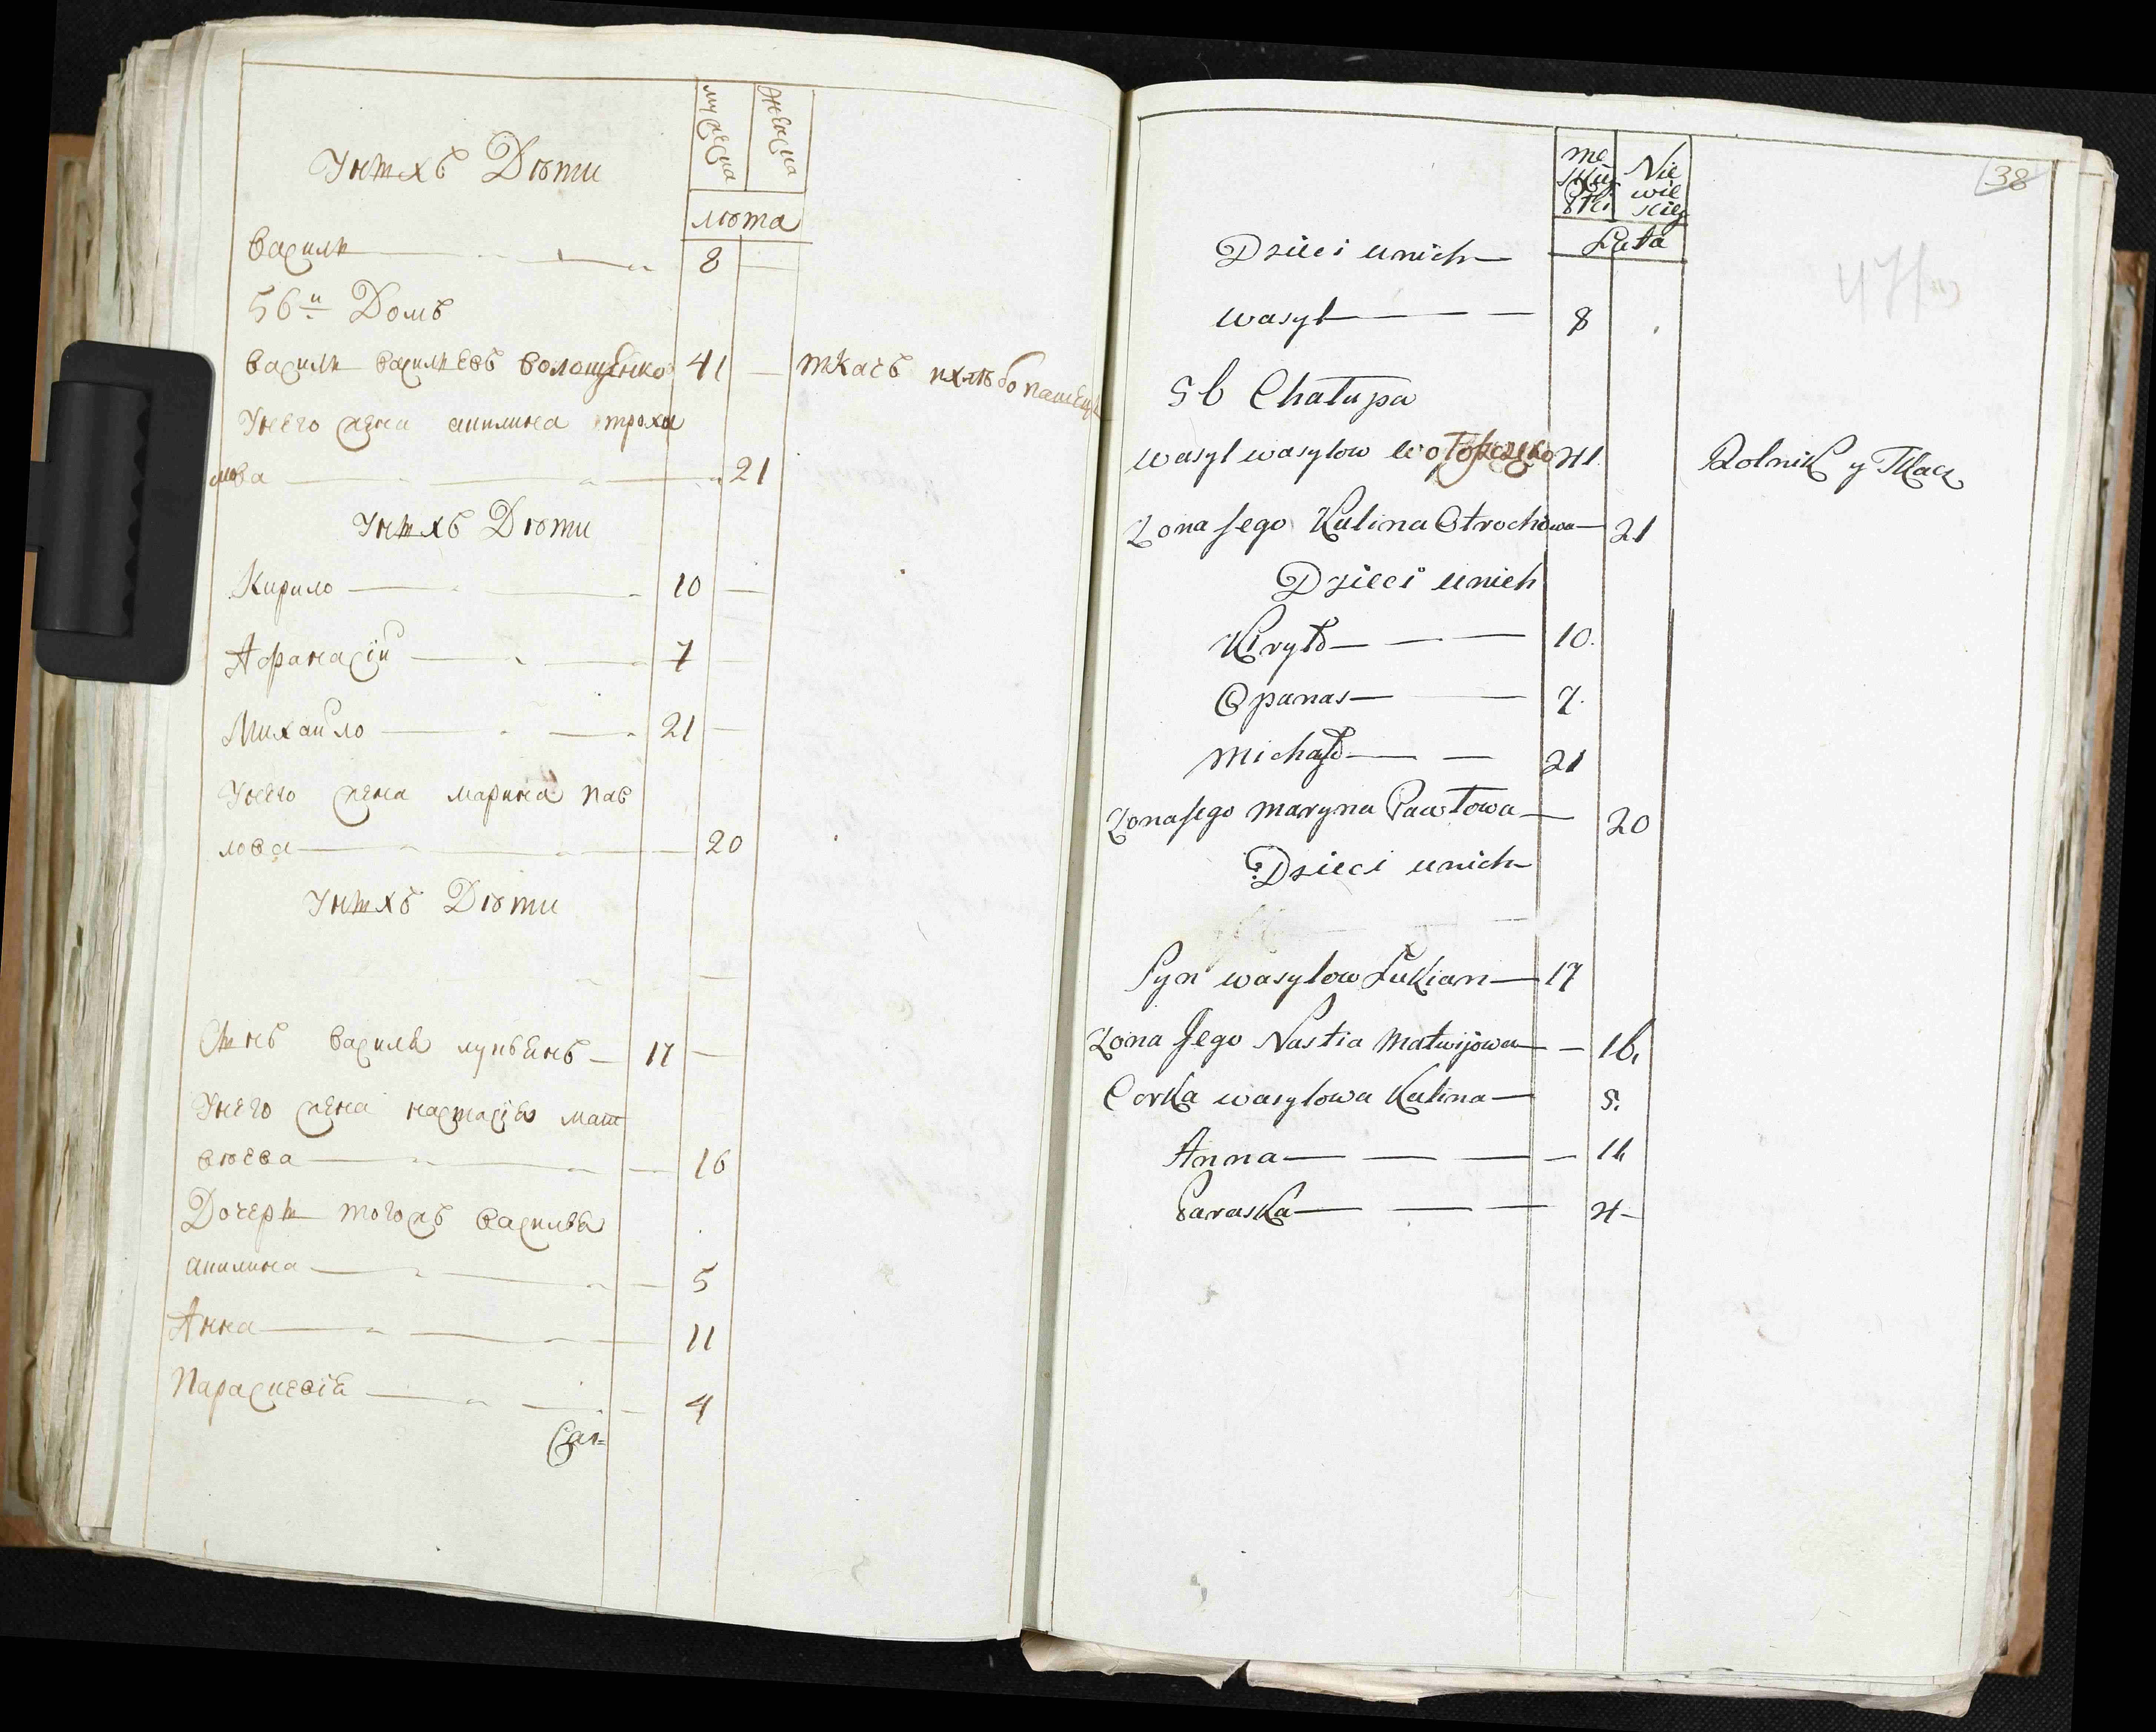 мужеска женска
Унихъ Дѣти
лѣта
Василь 8
56й Домъ
Василь Васильевъ Волошенко 41 ткачъ и хлѣбопашецъ
У него жена акилина трохи
мова 21
Унихъ Дѣти
Кирило 10
Афанасій 7
Михайло 21
У него жена марина пав
лова 20
Унихъ Дѣти
Сынъ Василя лукьянъ 17
У него жена настасія мат
вѣева 16
Дочеръ тогожъ Василья
акилина 5
Анна 11
Параскевія 4
38
Lata
Dzieci unich
wasyl 8
56 Chałupa
wasyl wasylow 41 Rolnik y Tkacz
Zona Jego Kulina Otrochimowa 21
Dzieci unich
Kiryło 10.
Opanas 7.
michayło 21
Zona Jego maryna Pawłowa 20
Dzieci unich
Syn wasylow Łukian 17
Zona Jego Nastia Matwijowa 16
Corka wasylowa Kulina 5.
Anna 11
Paraska 4